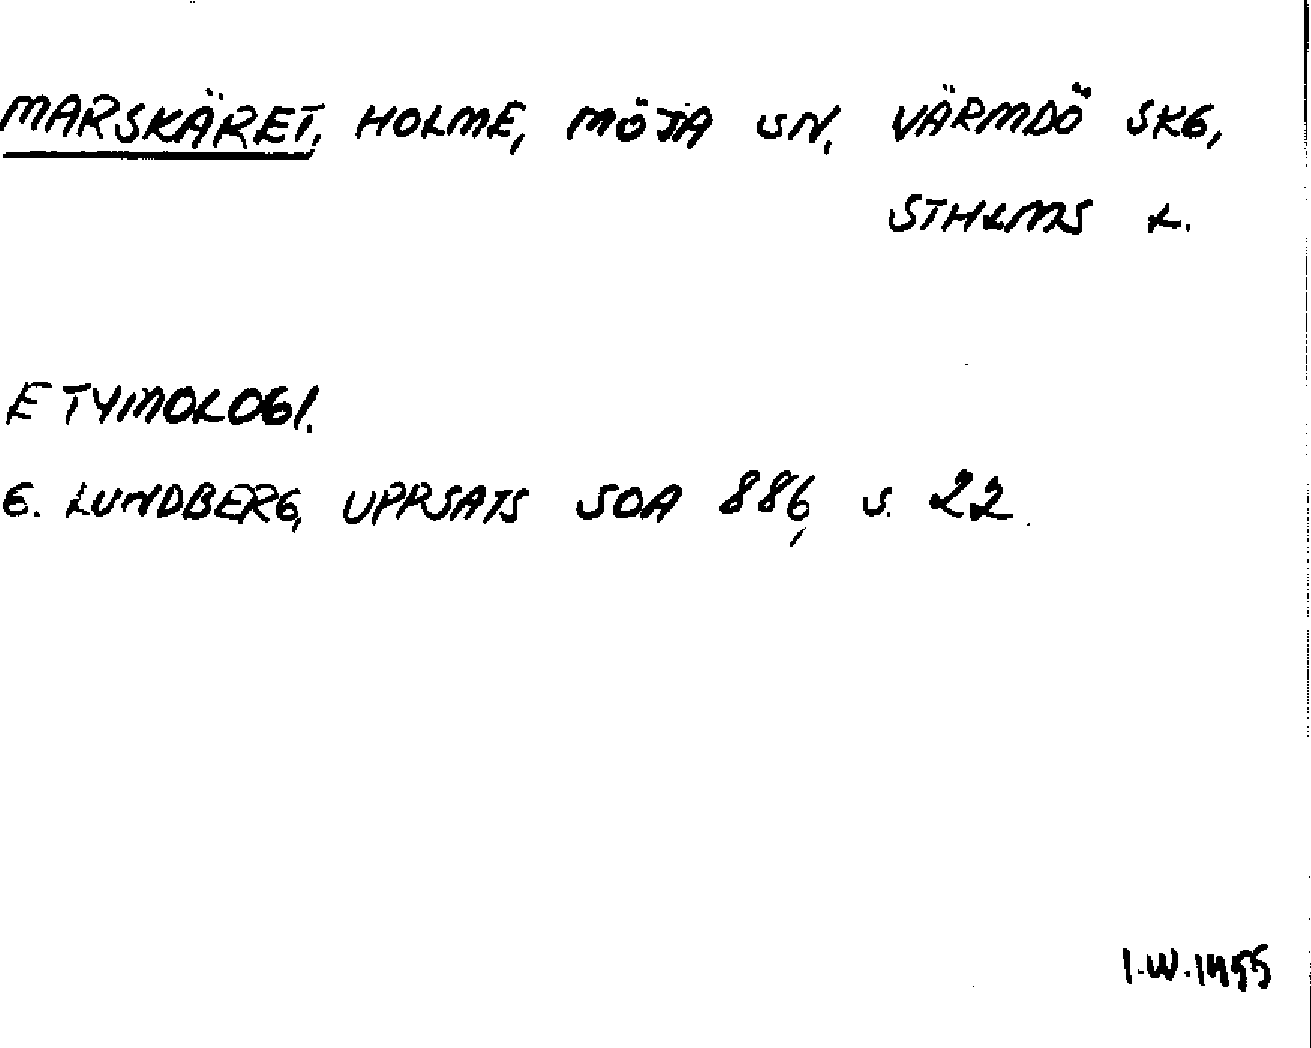 MARSKÄRET, HOLME, MÖJA SN, VÄRMDÖ SKG,
STHLMS L.
ETYMOLOGI.
G. LUNDBERG, UPPSATS SOA 886, S. 22.
I.W. 1955